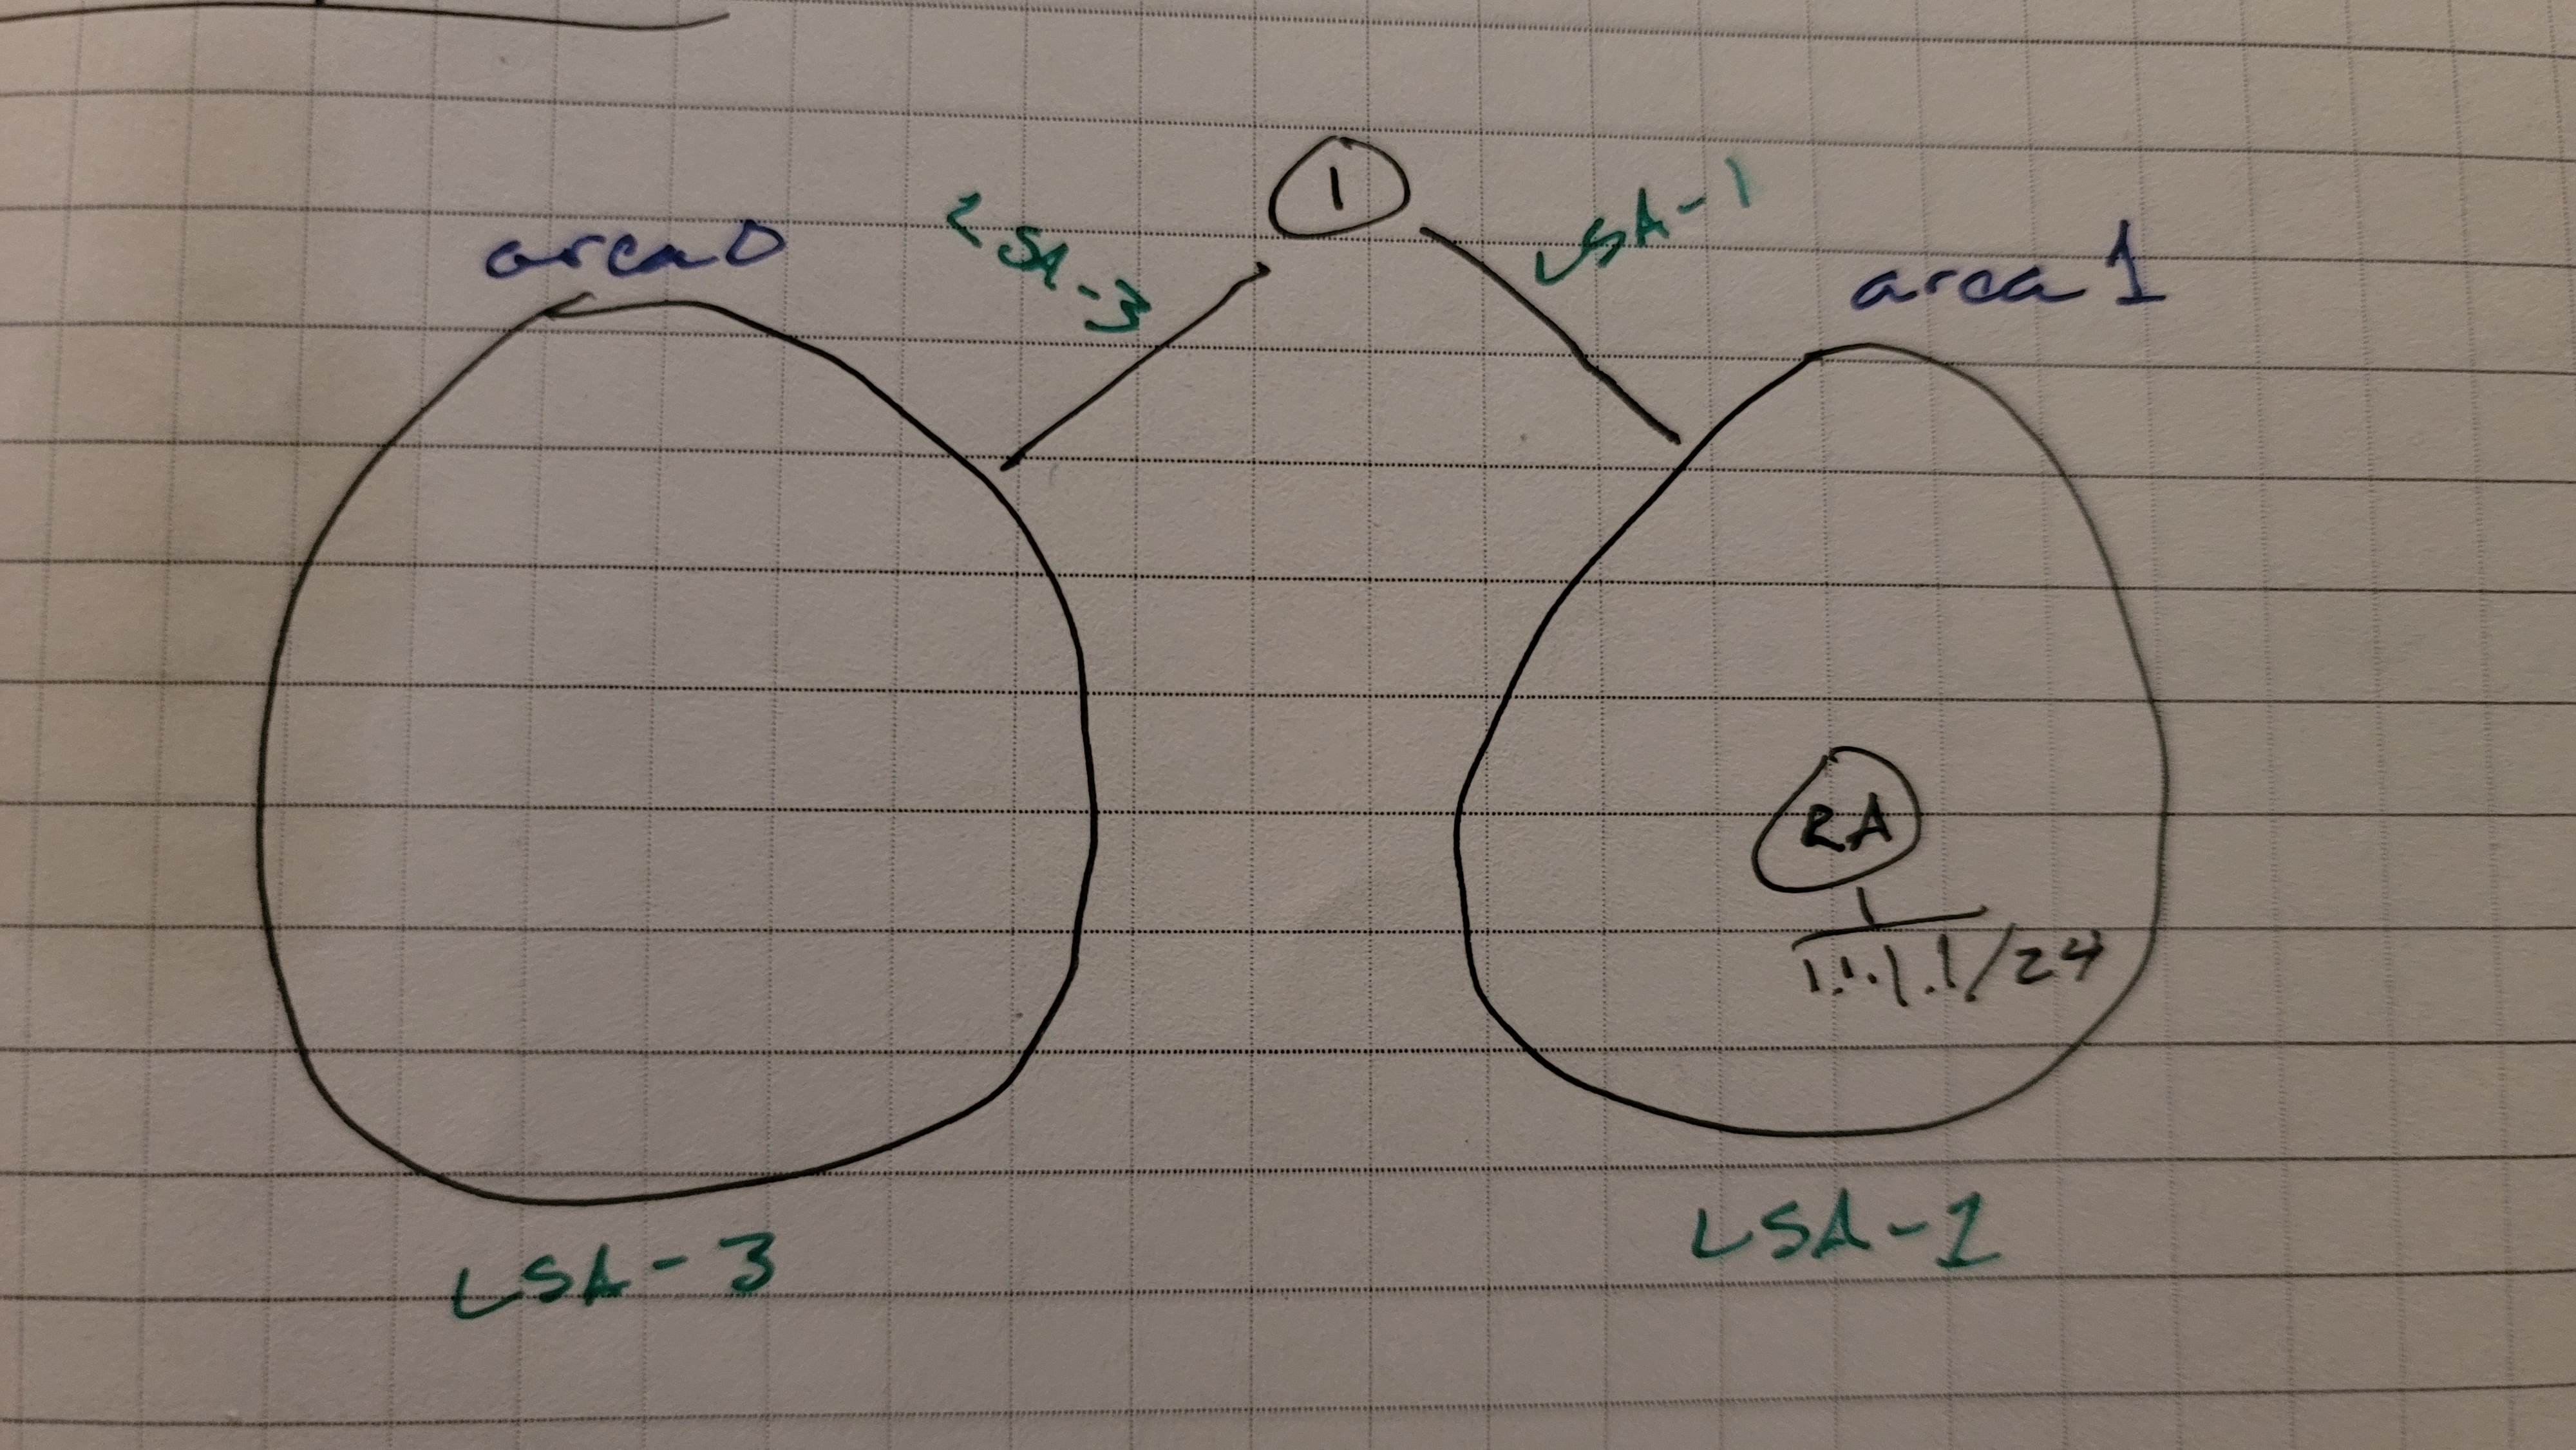 1
LSA-3
LSA-1
area 0
area 1
RA
1.1.1.1/24
LSA-3
LSA-1